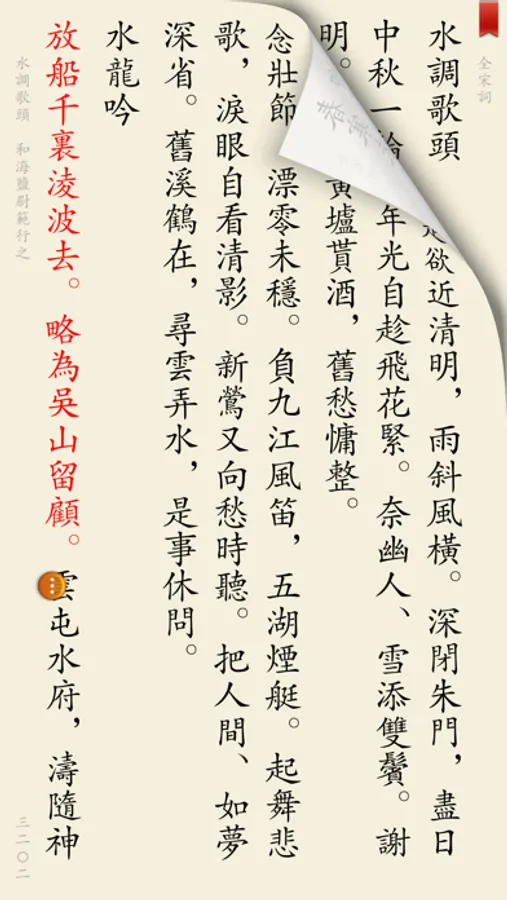 全宋詞
水調歌頭 欲近清明，雨斜風橫。深閉朱門，盡日
中秋一輪 年光自趁飛花緊。奈幽人、雪添雙鬢。謝
明。 黃壚貰酒，舊愁慵整。
念壯節 漂零未穩。負九江風笛，五湖煙艇。起舞悲
歌，淚眼自看清影。新鶯又向愁時聽。把人間、如夢
深省。舊溪鶴在，尋雲弄水，是事休問。
水龍吟
放船千裏淩波去。略為吳山留顧。雲屯水府，濤隨神
水調歌頭 和海鹽尉範行之
三二〇二